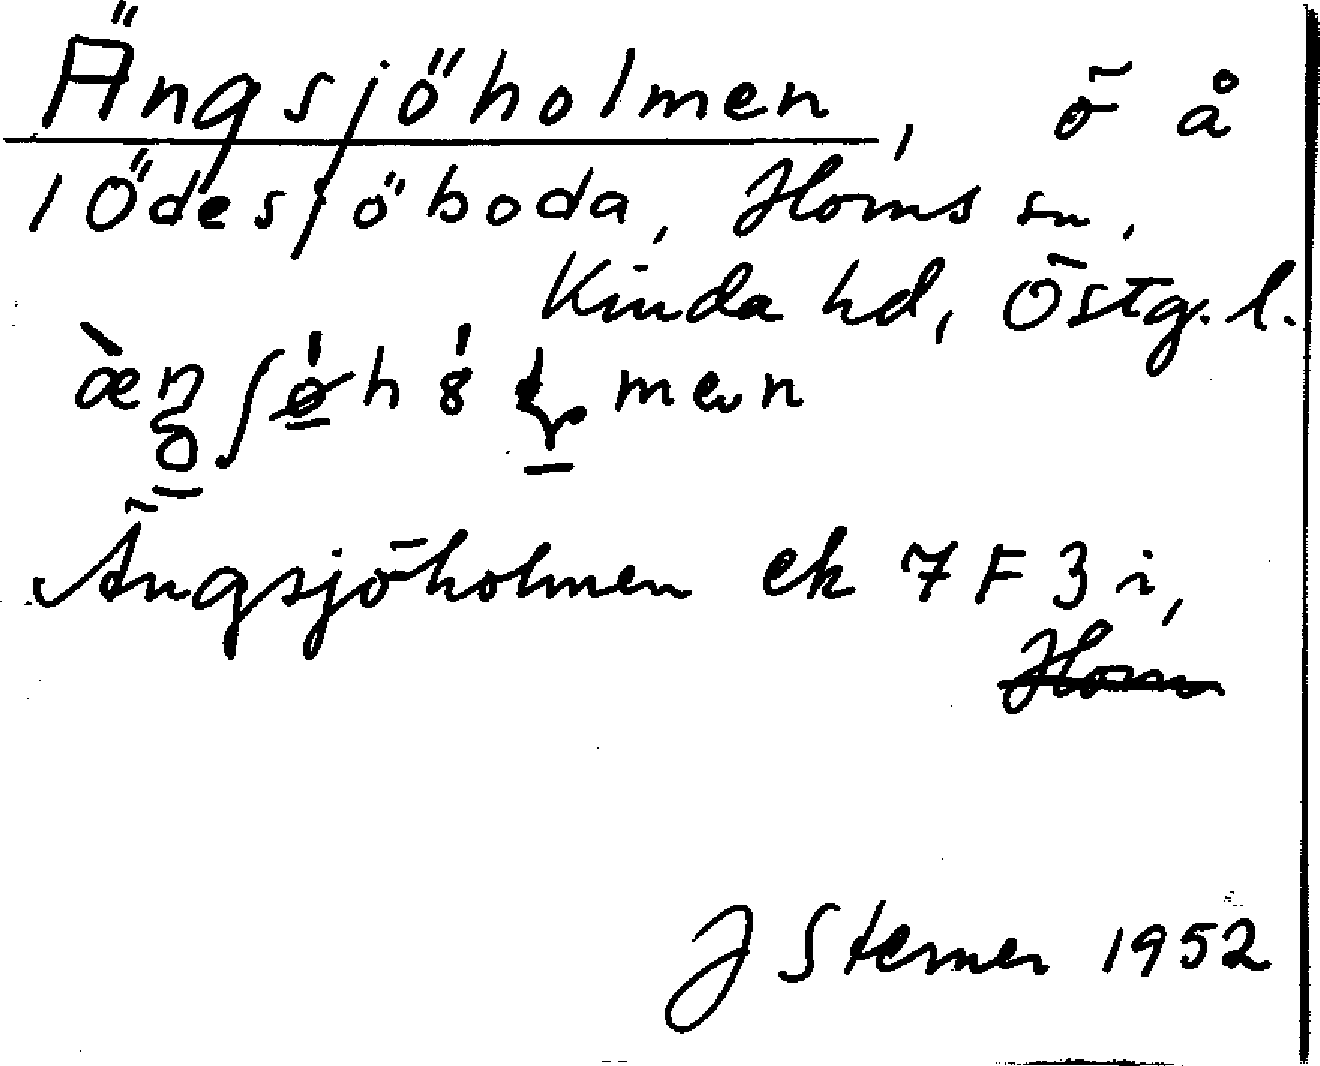 Ängsjöholmen, ö å
1 Ödesjöboda, Horns sn,
Kinda hd, Östg. l.
Ängsjöholmen ek 7 F 3 i,
Horn
J Sterner 1952